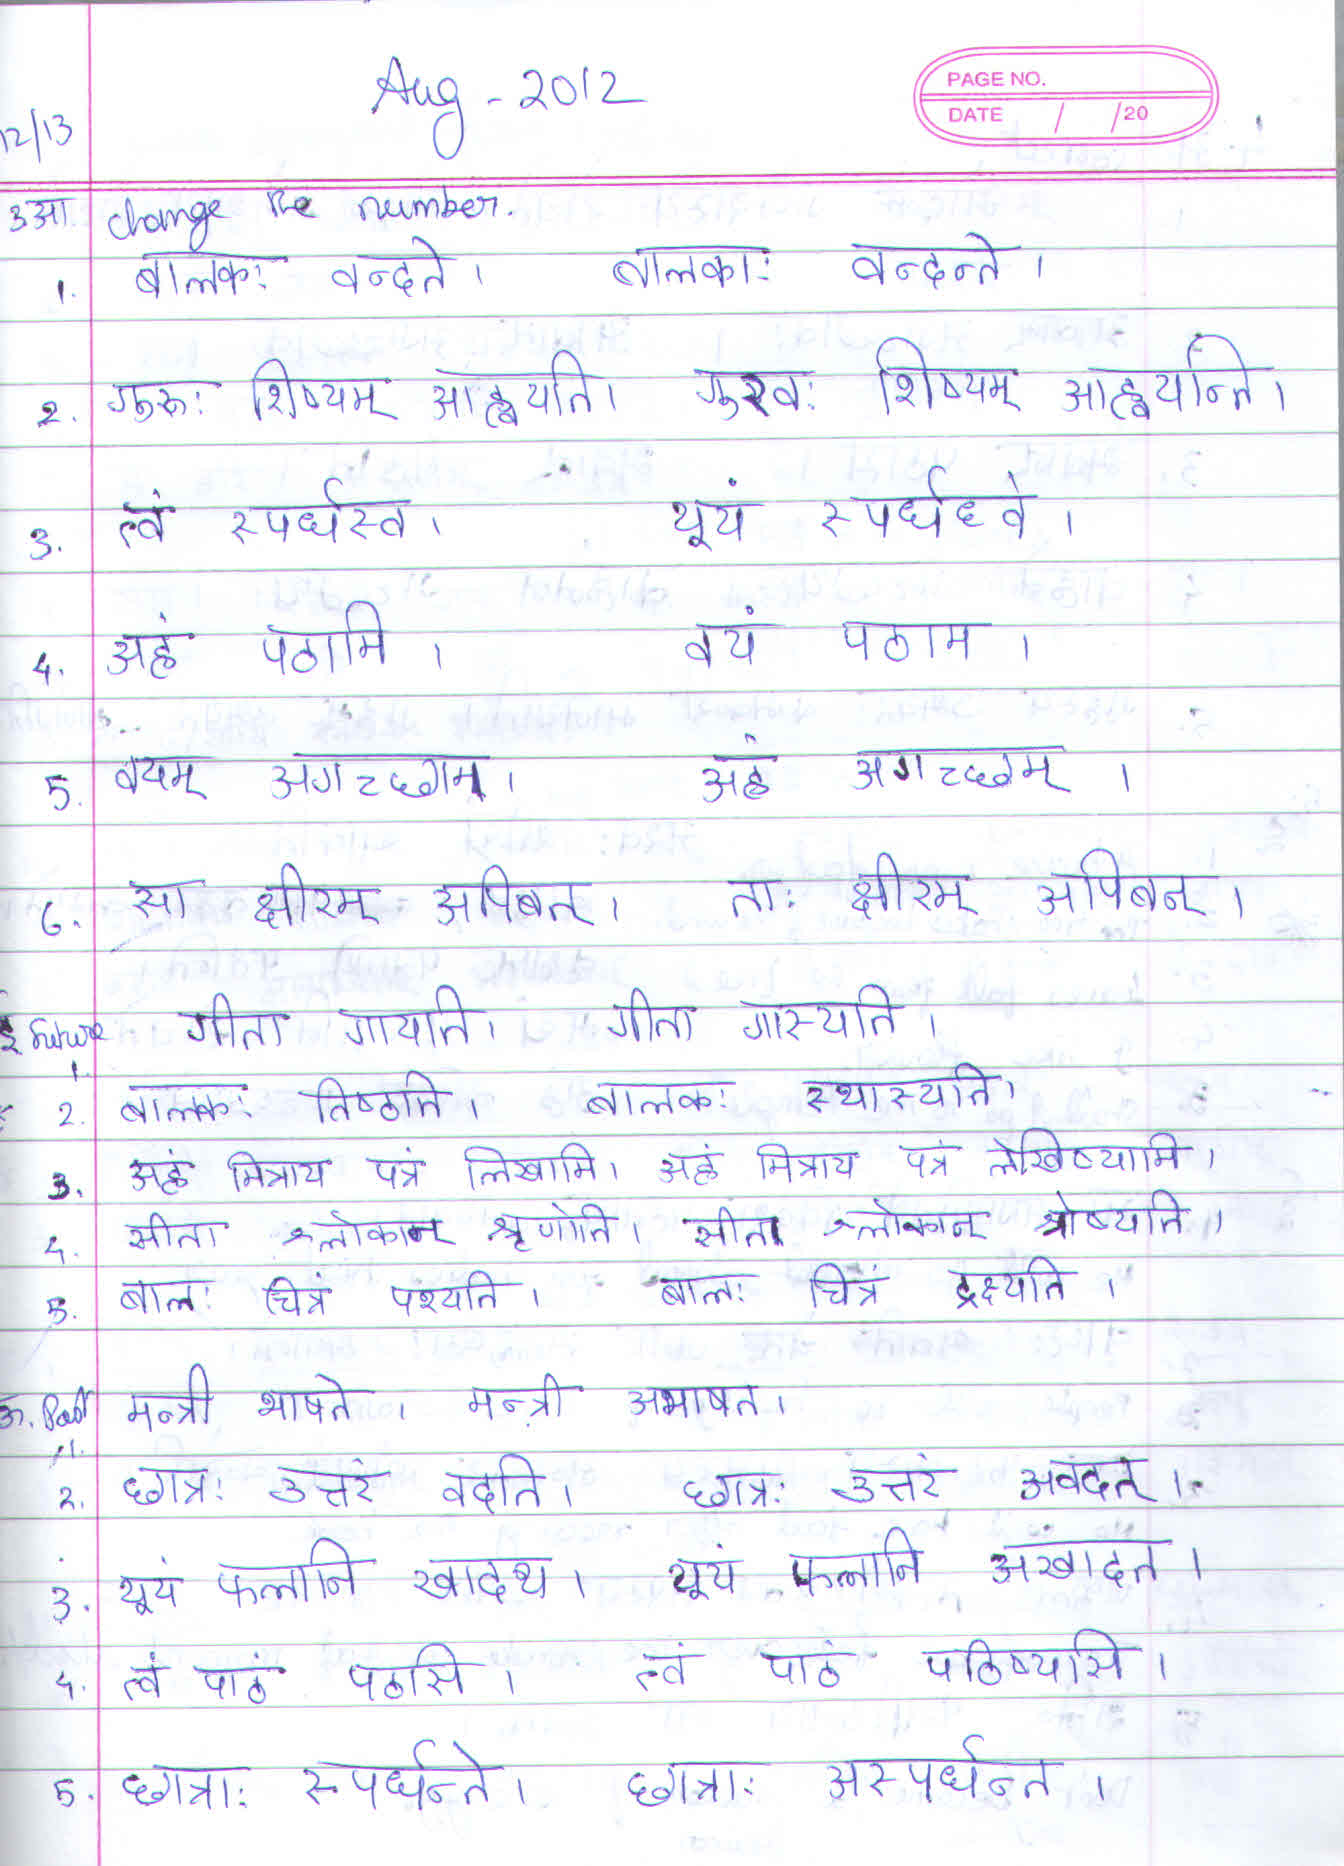 Aug - 2012
PAGE NO.
DATE / /20
12/13
उआ change the number.
1. बालकः वन्दते । बालकाः वन्दन्ते ।
2. गुरूः शिष्यम् आह्वयति । गुरवः शिष्यम् आह्वयन्ति ।
3. त्वं स्पर्धस्व । यूयं स्पर्धध्वे ।
4. अहं पठामि । वयं पठाम ।
5. वयम् अगच्छाम । अहं अगच्छम् ।
6. सा क्षीरम् अपिबत् । ताः क्षीरम् अपिबन् ।
ई future
1. गीता गायति । गीता गास्यति ।
2. बालकः तिष्ठति । बालकः स्थास्यति ।
3. अहं मित्राय पत्रं लिखामि । अहं मित्राय पत्रं लेखिष्यामि ।
4. सीता श्लोकान् श्रृणोति । सीता श्लोकान् श्रोष्यति ।
5. बालः चित्रं पश्यति । बालः चित्रं द्रक्ष्यति ।
ऊ. Past
1. मन्त्री भाषते । मन्त्री अभाषत ।
2. छात्रः उत्तरं वदति । छात्रः उत्तरं अवदत् ।
3. यूयं फलानि खादथ । यूयं फलानि अखादत ।
4. त्वं पाठं पठसि । त्वं पाठं पठिष्यसि ।
5. छात्राः स्पर्धन्ते । छात्राः अस्पर्धन्त ।